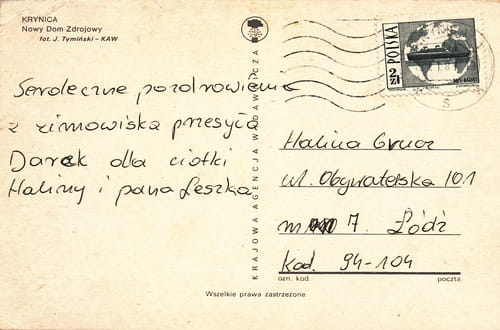 KRYNICA
Nowy Dom Zdrojowy
fot. J. Tymiński – KAW
Serdeczne pozdrowienia
z zimowiska przesyła
Darek dla cioki
Haliny i pana Leszka
KRAJOWA AGENCJA WYDAWNICZA
POLSKA
2 ZŁ
Halina Grucz
ul. Obywatelska 101
m 7. Łódź
kod. 94-104
ozn. kod. poczta
Wszelkie prawa zastrzeżone